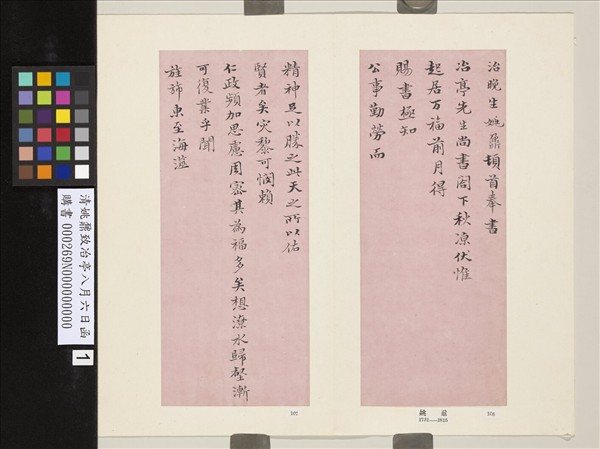 治晚生姚鼐頓首奉書
冶亭先生尚書閣下秋涼伏惟
起居万福前月得
賜書極知
公事勤勞而
精神足以勝之此天之所以佑
賢者矣灾黎可憫賴
仁政頻加思慮周密其為福多矣想潦水歸壑漸
可復業乎聞
旌斾東至海濱
姚鼐
1731—1815
106
107
清姚鼐致冶亭八月六日函
購書 000269N000000000
1